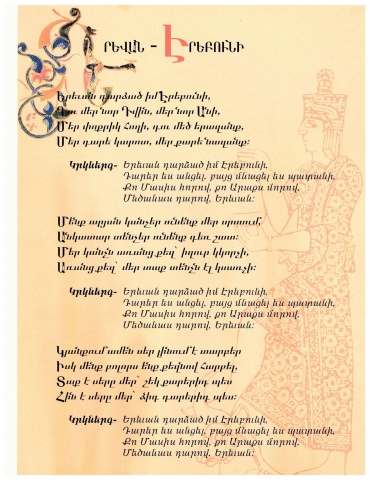 ԵՐԵՎԱՆ - ԷՐԵԲՈՒՆԻ
Երևան դարձած իմ Էրեբունի,
Դու մեր նոր Դվին, մեր նոր Անի,
Մեր փոքրիկ հողի, դու մեծ երազանք,
Մեր դարե կարոտ, մեր քարե նազանք:
Կրկներգ- Երևան դարձած իմ Էրեբունի,
Դարեր ես անցել, բայց մնացել ես պատանի,
Քո Մասիս հորով, քո Արաքս մորով,
Մեծանաս դարով, Երևան:
Մենք արյան կանչեր ունենք մեր սրտում,
Անկատար տենչեր ունենք դեռ շատ:
Մեր կանչն առանց քեզ՝ իզուր կկորչի,
Առանց քեզ՝ մեր տաք տենչն էլ կսառչի:
Կրկներգ- Երևան դարձած իմ Էրեբունի,
Դարեր ես անցել, բայց մնացել ես պատանի,
Քո Մասիս հորով, քո Արաքս մորով,
Մեծանաս դարով, Երևան:
Կյանքում ամեն սեր լինում է տարբեր
Իսկ մենք բոլորս ենք քեզնով հարբել,
Տաք է սերը մեր՝ շեկ քարերիդ պես
Հին է սերը մեր՝ ձիգ դարերիդ պես:
Կրկներգ- Երևան դարձած իմ Էրեբունի,
Դարեր ես անցել, բայց մնացել ես պատանի,
Քո Մասիս հորով, քո Արաքս մորով,
Մեծանաս դարով, Երևան: